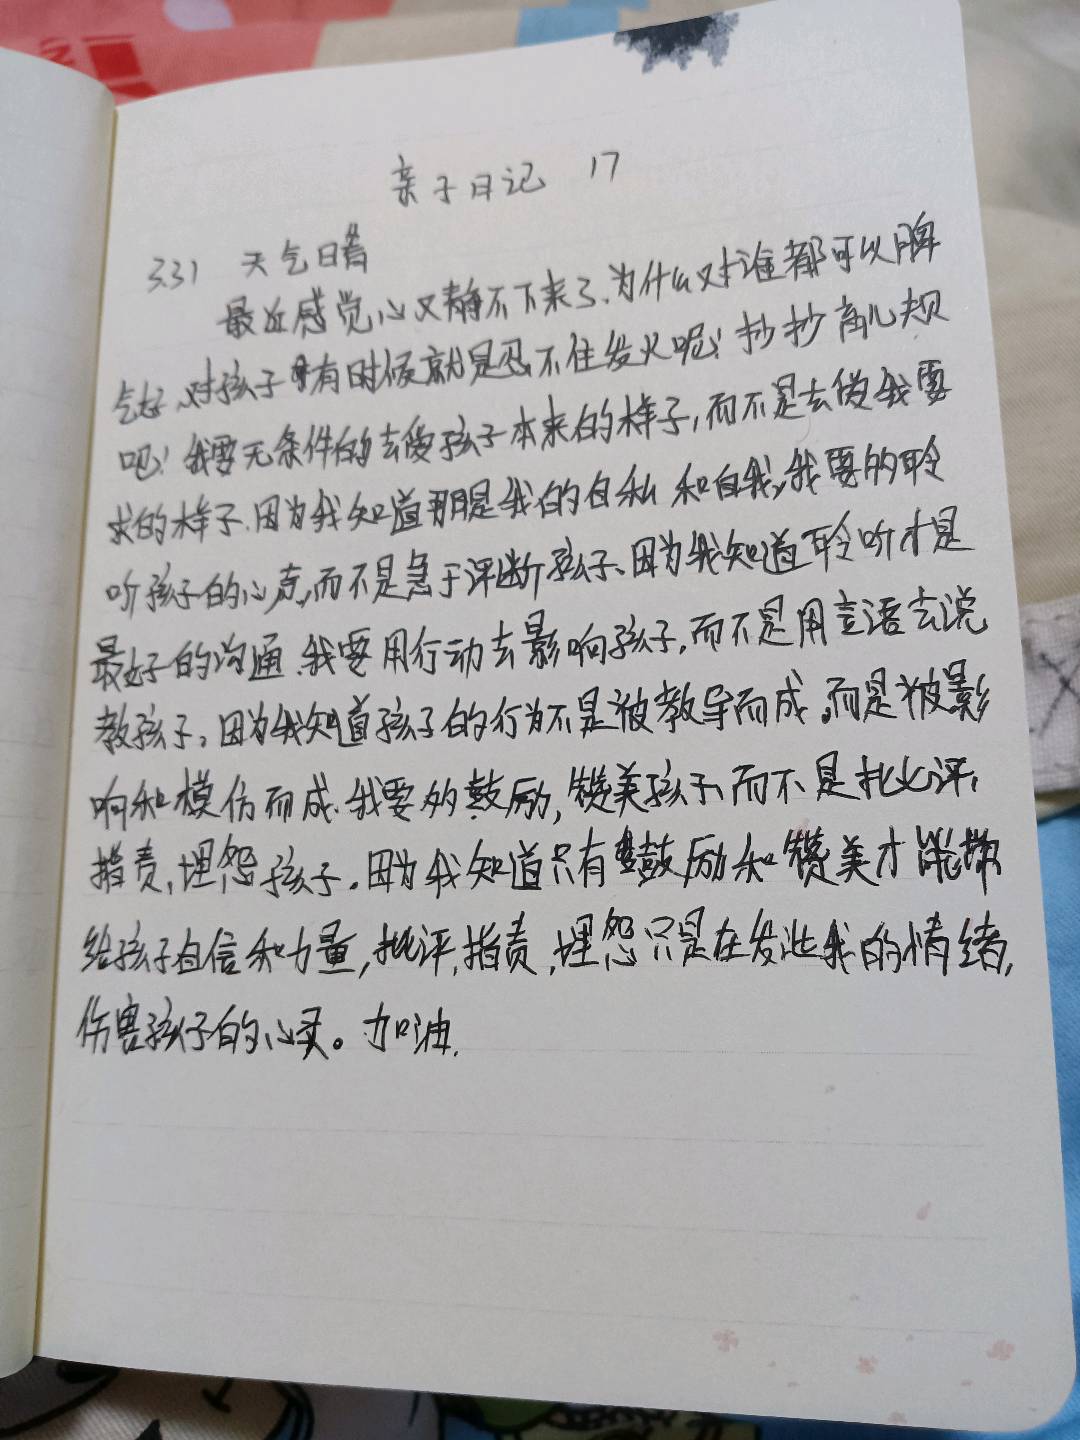 亲子日记 17
3.31 天气晴
最近感觉心又静不下来了.为什么对谁都可以脾
气好,对孩子有时候就是忍不住发火呢!抄抄育儿规
吧!我要无条件的去爱孩子本来的样子,而不是去做我要
求的样子.因为我知道那是我的自私和自我,我要的聆
听孩子的心声,而不是急于评断孩子、因为我知道聆听才是
最好的沟通.我要用行动去影响孩子,而不是用言语去说
教孩子,因为我知道孩子的行为不是被教导而成。而是被影
响和模仿而成.我要多的鼓励,赞美孩子、而不是批评,
指责,埋怨孩子.因为我知道只有鼓励和赞美才能带
给孩子自信和力量,批评,指责,埋怨只是在发泄我的情绪,
伤害孩子的心灵。加油.